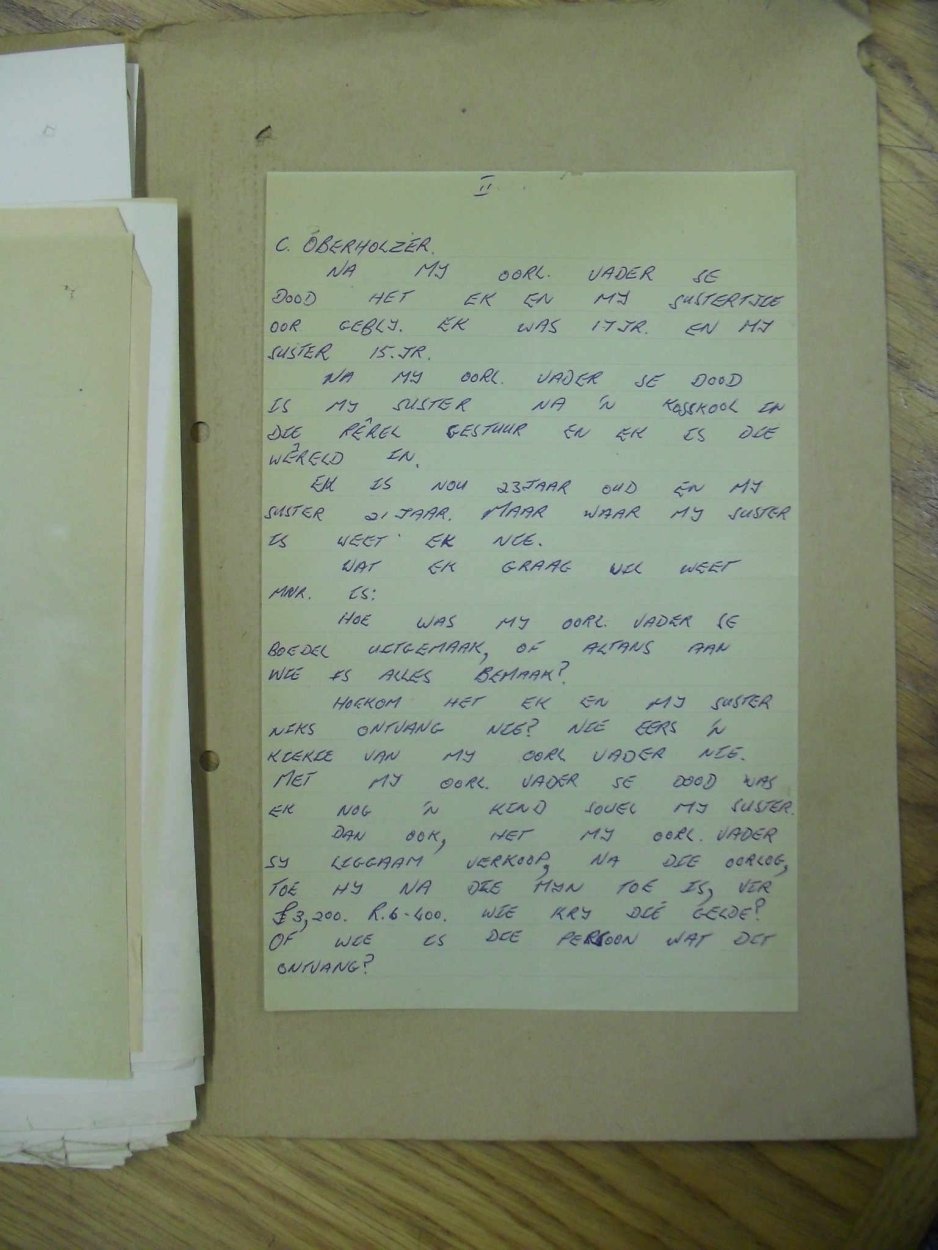 II
C. ÓBERHOLZER.
NA MY OORL. VADER SE
DOOD HET EK EN MY SUSTERTJIE
OOR GEBLY. EK WAS 17 JR. EN MY
SUSTER 15. JR.
NA MY OORL. VADER SE DOOD
IS MY SUSTER NA 'N KOSSKOOL IN
DIE PÊREL GESTUUR EN EK IS DIE
WÊRELD IN.
EK IS NOU 23 JAAR OUD EN MY
SUSTER 21 JAAR. MAAR WAAR MY SUSTER
IS WEET EK NIE.
WAT EK GRAAG WIL WEET
MNR. IS:
HOE WAS MY OORL. VADER SE
BOEDEL UITGEMAAK, OF ALTANS AAN
WIE IS ALLES BEMAAK?
HOEKOM HET EK EN MY SUSTER
NIKS ONTVANG NIE? NIE EERS 'N
KIEKIE VAN MY OORL VADER NIE.
MET MY OORL. VADER SE DOOD WAS
EK NOG 'N KIND SOWEL MY SUSTER.
DAN OOK, HET MY OORL. VADER
SY LIGGAAM VERKOOP, NA DIE OORLOG,
TOE HY NA DIE MYN TOE IS, VIR
£3,200. R.6-400. WIE KRY DIÉ GELDE?
OF WIE IS DIE PERSOON WAT DIT
ONTVANG?